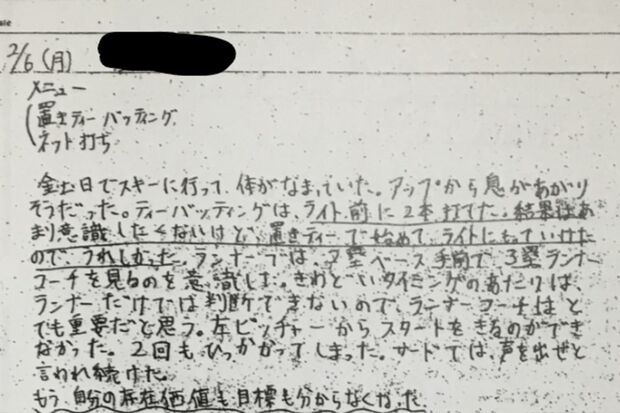 ate
2/6 (月)
メニュー
置きティーバッティング
ネット打ち
金土日でスキーに行って、体がなまっていた。アップから息があがり
そうだった。ティーバッティングは、ライト前に2本打てた。結果はあ
まり意識したくないけど、置きティーで始めて、ライトにもっていけた
ので、うれしかった。ランナーでは、2塁ベース手前で、3塁ランナー
コーチを見るのを意識した。きわどいタイミングのあたりは、
ランナーだけでは判断できないので、ランナーコーチはと
ても重要だと思う。左ピッチャーからスタートをきるのができ
なかった。2回もひっかかってしまった。サードでは、声を出せと
言われ続けた。
もう自分の存在価値も目標も分からなくなった